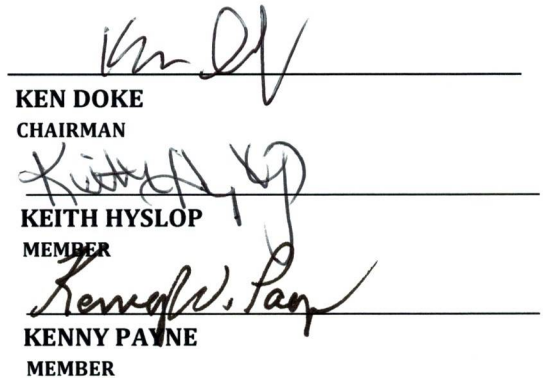 Ken Doke
KEN DOKE
CHAIRMAN
Keith Hyslop
KEITH HYSLOP
MEMBER
Kenny W. Payne
KENNY PAYNE
MEMBER